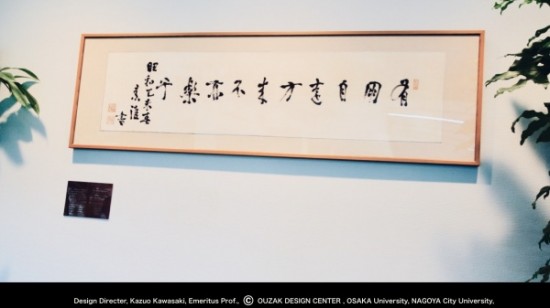 有朋自遠方来不亦樂乎
昭和
書
Design Directer, Kazuo Kawasaki, Emeritus Prof., © OUZAK DESIGN CENTER , OSAKA University, NAGOYA City University,